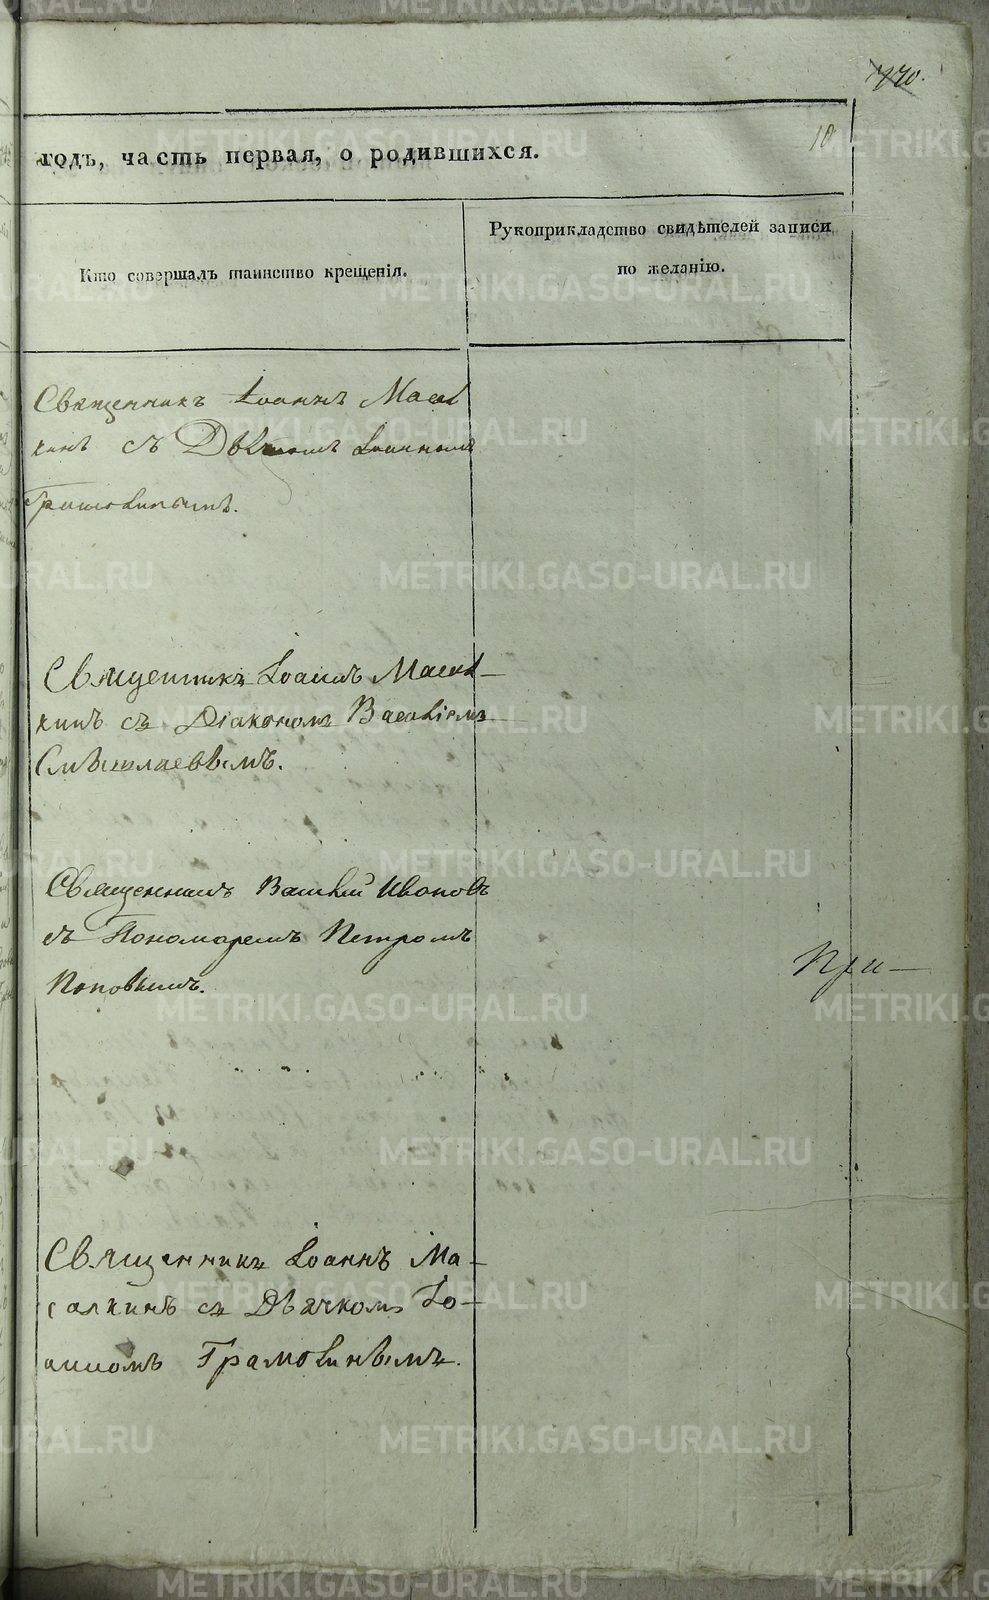 770.
10
годъ, часть первая, о родившихся.
Кто совершалъ таинство крещенія.
Рукоприкладство свидѣтелей записи
по желанію.
Священникъ Іоаннъ Масал
кинъ съ Іоанномъ
Грамовинымъ.
Священникъ Іоаннъ Масал
кинъ съ Діакономъ Василіемъ
Священникъ Василій Ивановъ
съ Пономаремъ Петромъ
Поповымъ.
При
Священникъ Іоаннъ Ма-
салкинъ съ Дьячкомъ Іо-
анномъ Грамовинымъ.
METRIKI.GASO-URAL.RU